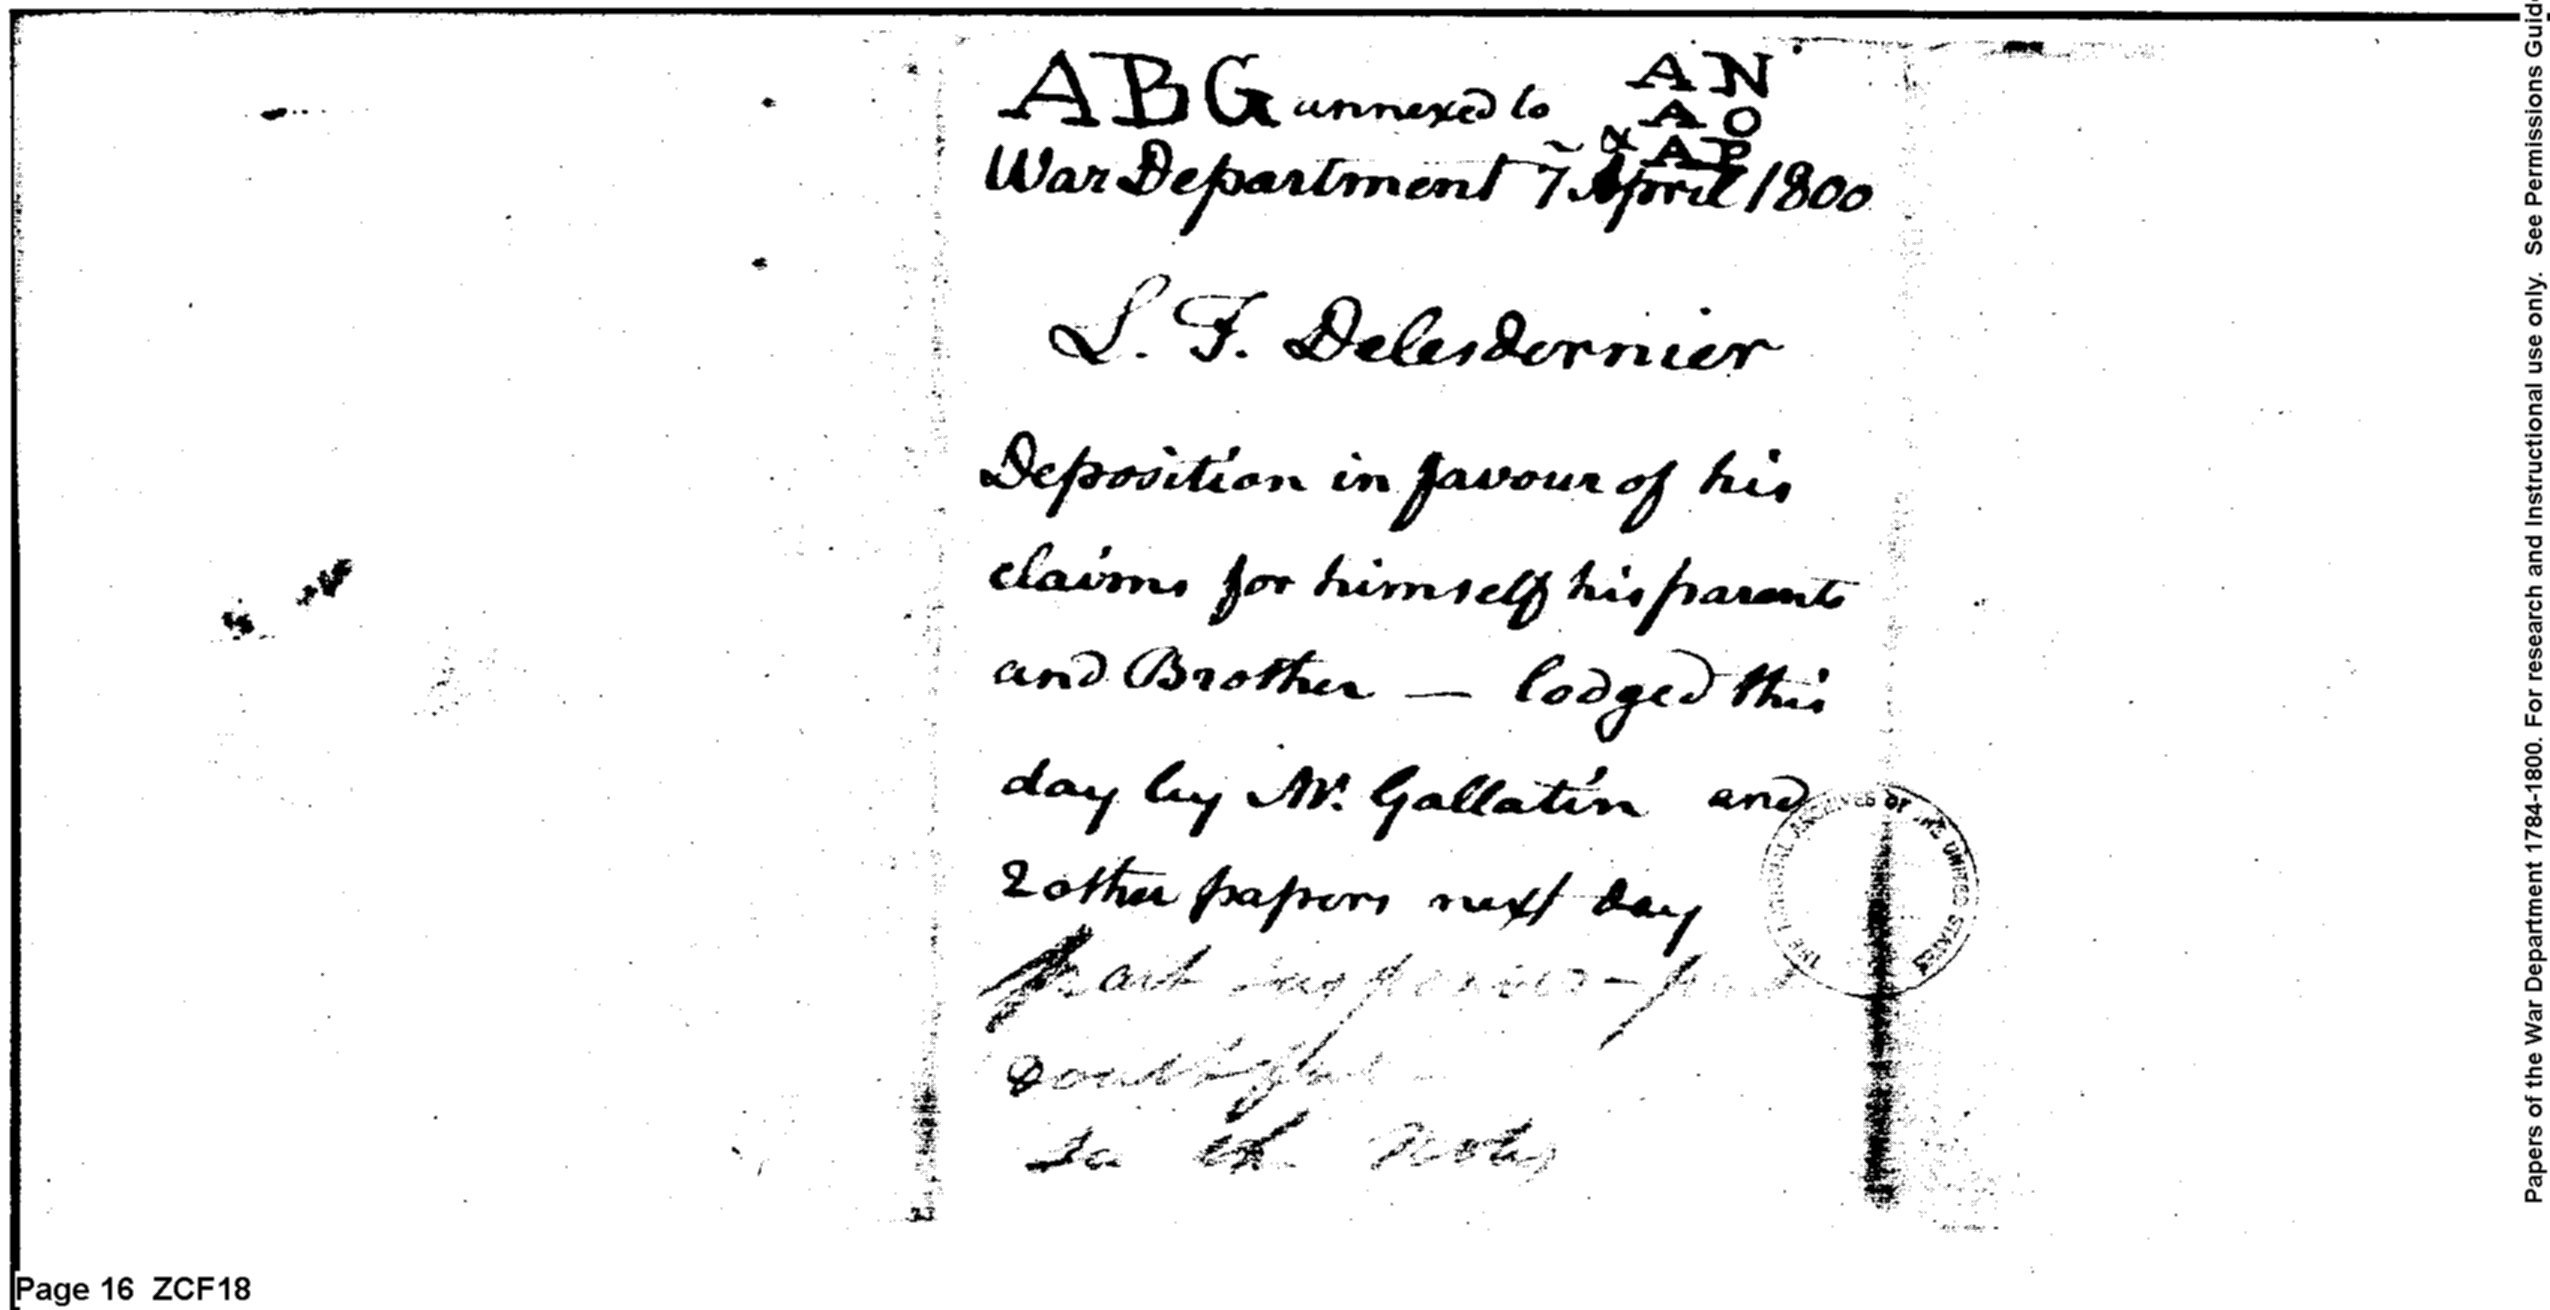 ABG annexed to AN
AO
& AP
War Department 7 April 1800
L. F. Delesdernier
Deposition in favour of his
claims for himself his parents
and Brother — lodged this
day by Mr. Gallatin and
2 other papers next day
part
doubtful -
THE NATIONAL ARCHIVES OF THE UNITED STATES
Page 16 ZCF18
Papers of the War Department 1784-1800. For research and Instructional use only. See Permissions Guid